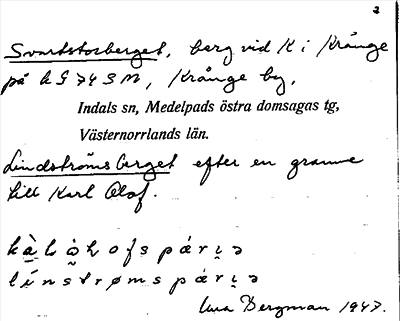 2
Svartstosberget, berg vid K i Krånge
på kG 7454 SM, Krånge by,
Indals sn, Medelpads östra domsagas tg,
Västernorrlands län.
Lindströmsberget efter en granne
till Karl Olof.
línstrømspárı̣ə
Bergman 1947.